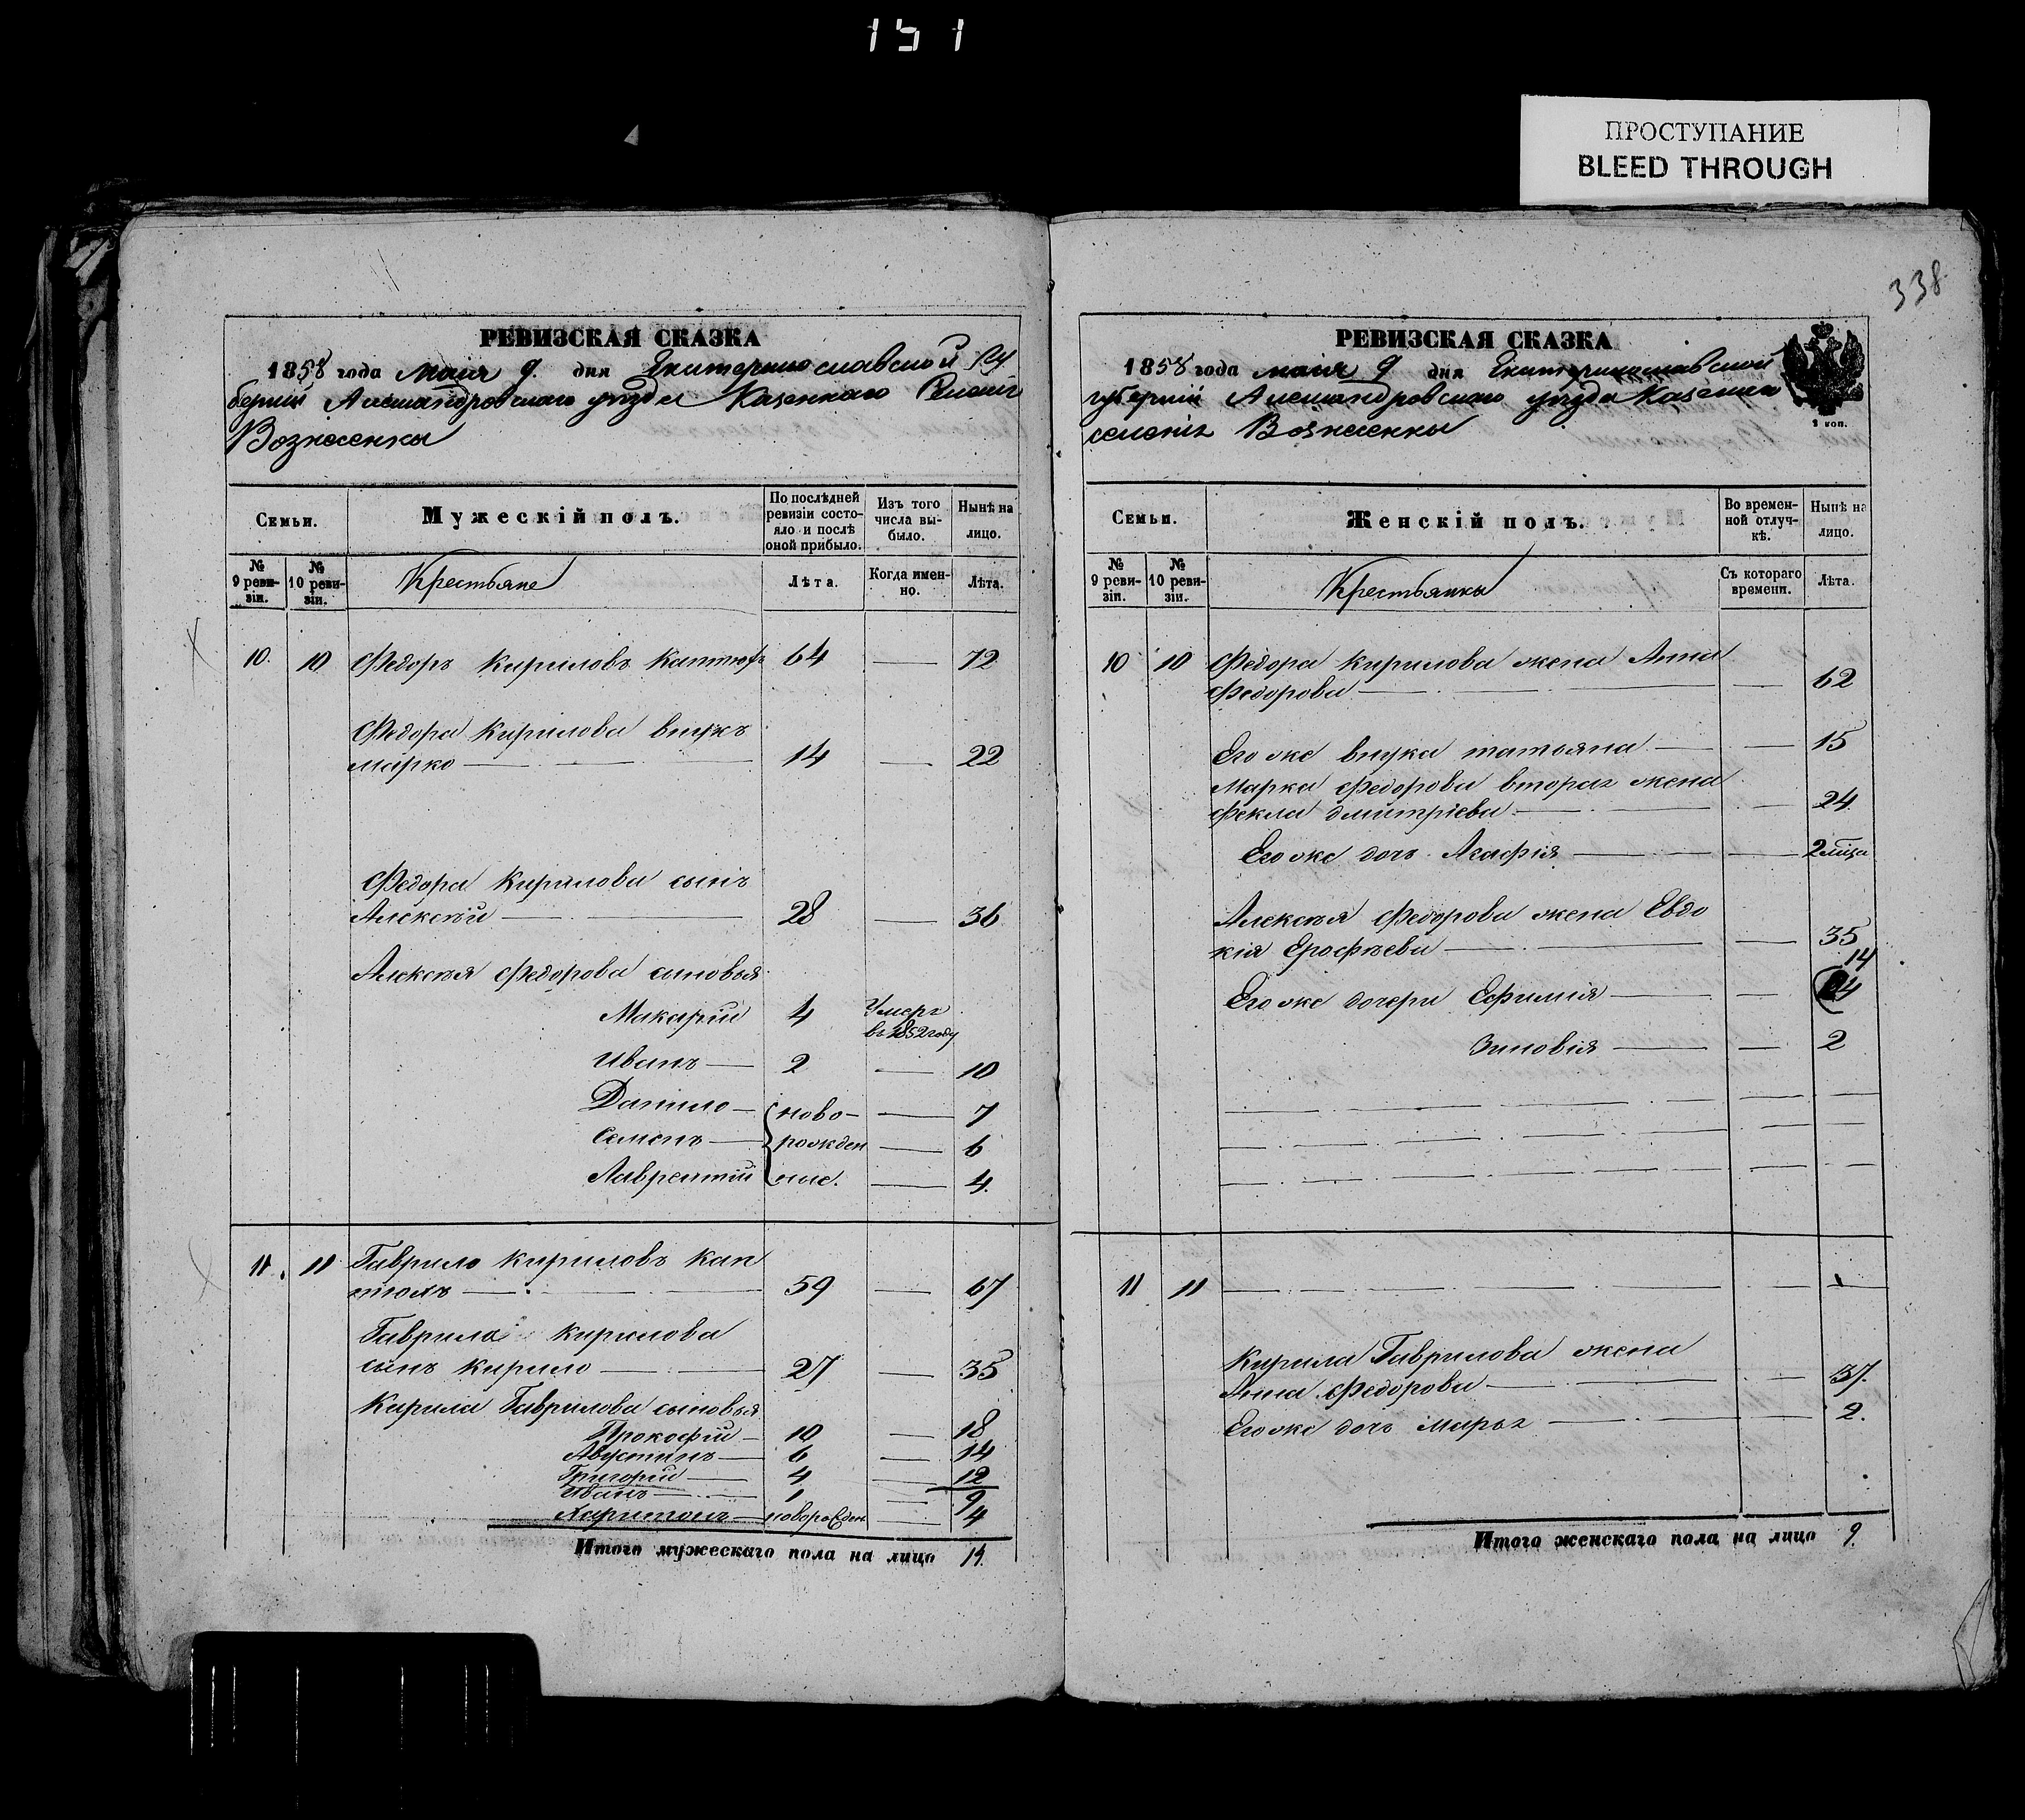 151
ПРОСТУПАНИЕ
BLEED THROUGH
338
РЕВИЗСКАЯ СКАЗКА
1858 года маія 9. дня Екатеринославской Гу
берніи Александровскаго уѣзда Казеннаго Селенія
Вознесенки
Семьи.
Мужескій полъ.
По послѣдней
ревизіи состо-
яло и послѣ
оной прибыло.
Изъ того
числа вы-
было.
Нынѣ на
лицо.
№
9 реви-
зіи.
№
10 реви-
зіи.
Крестьяне
Лѣта.
Когда имен-
но.
Лѣта.
10. 10 Федоръ Кириловъ 64 — 72
Федора Кирилова внукъ
Марко — 14 — 22
Федора Кирилова сынъ
Алексѣй — 28 — 36
Алексѣя Федорова сыновья
Макарій 4 Умеръ
въ 1852 году
Иванъ — 2 — 10
Данило — ново- — 7
Семенъ — рожден — 6
Лаврентій ные. — 4.
11. 11 Гаврило Кириловъ Кап
— 59 — 67
Гаврила Кирилова
сынъ Кирило — 27 — 35
Кирила Гаврилова сыновья
Прокофій — 10 — 18
Августинъ — 6 — 14
Григорій — 4 — 12
Иванъ — 1 — 9
Харитонъ — новорожден — 4
Итого мужескаго пола на лицо 14.
РЕВИЗСКАЯ СКАЗКА
1858 года маія 9 дня Екатеринославской
губерніи Александровскаго уѣзда Казенна
селенія Вознесенки
1 коп.
Семьи.
Женскій полъ.
Во времен-
ной отлуч-
кѣ.
Нынѣ на
лицо.
№
9 реви-
зіи.
№
10 реви-
зіи.
Крестьянки
Съ котораго
времени.
Лѣта.
10 10 Федора Кирилова жена Анна
Федорова — — 62
Его же внука татьяна — — 15
Марка Федорова вторая жена
Фекла дмитріева — — 24.
Его же дочь Агафія — — 2 мѣца
Алексѣя Федорова жена Евдо
кія Ерофѣева — — 35
14
Его же дочери Ефимія — —
Зиновія — — 2
11 11 — — —
Кирила Гаврилова жена
Анна Федорова — — 37.
Его же дочь Марья — — 2.
Итого женскаго пола на лицо 9.